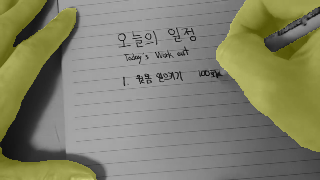 오늘의 일정
Today's Work out
1. 윗몸 일으키기 100회